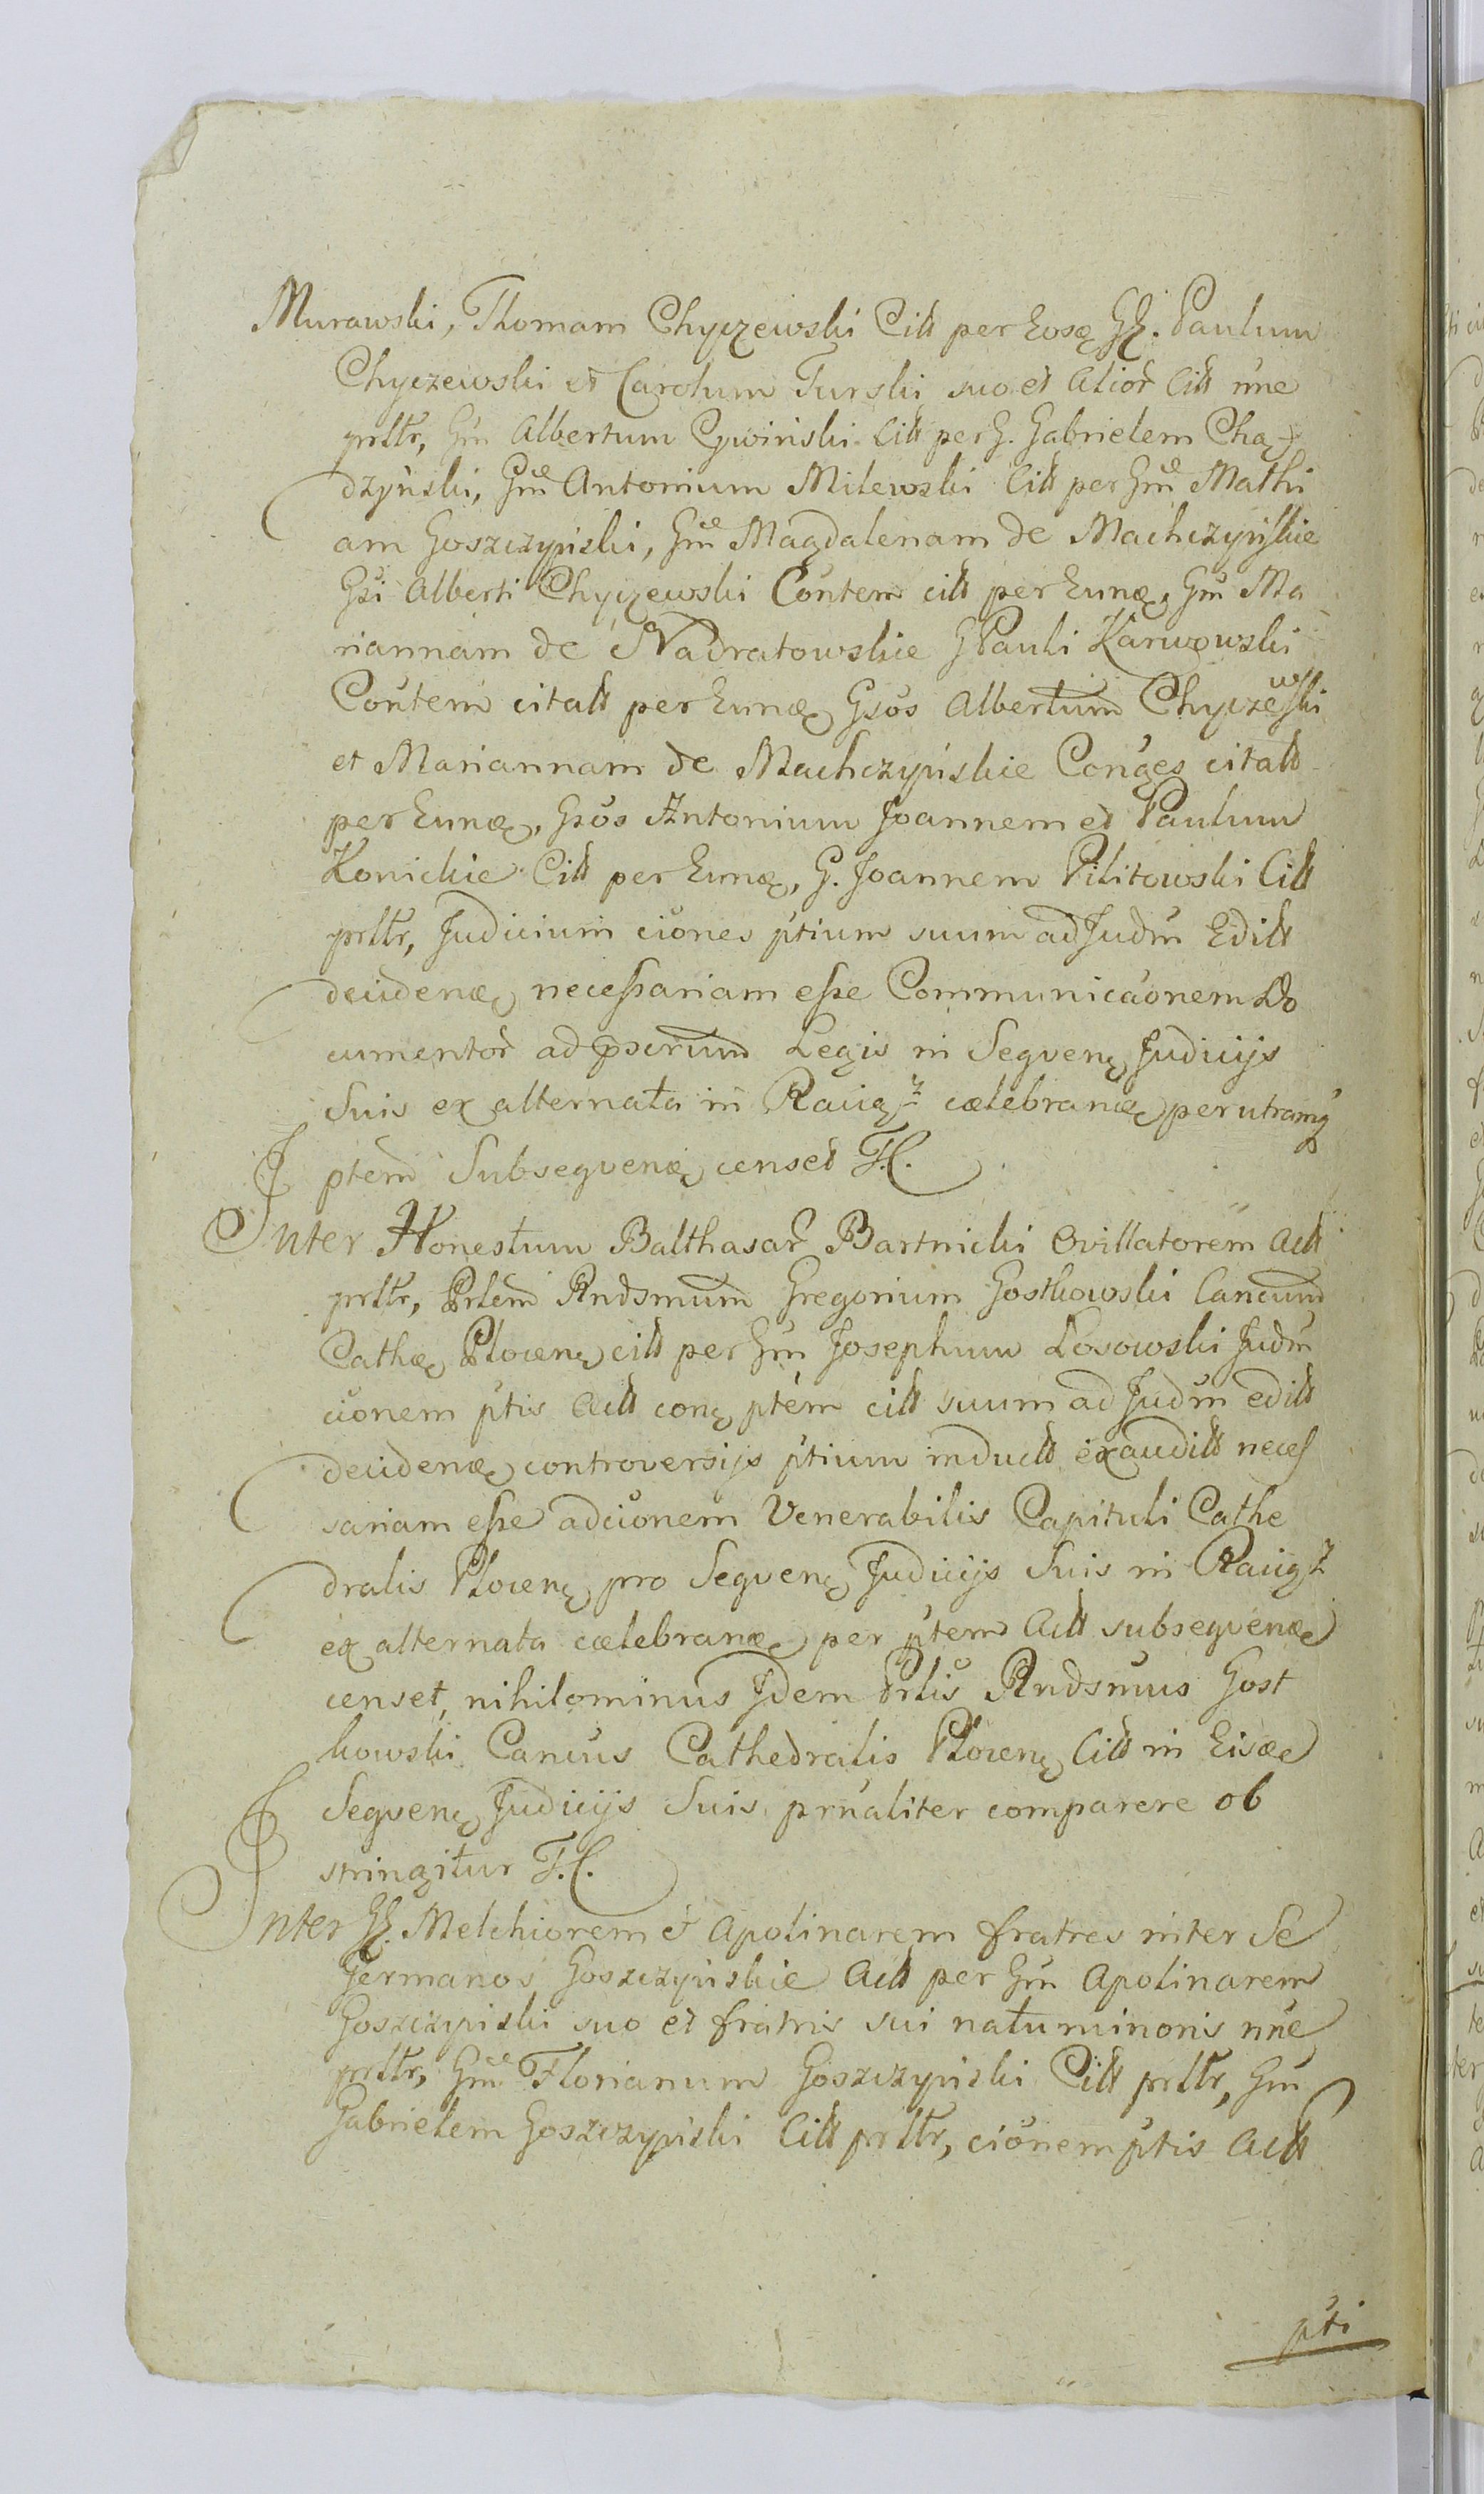 Murawski, Thomam Chyczewski Citt per Eosq GG. Paulum
Chyczewski et Carolum Turski suo et Alior Citt nne
prttr, Gm Albertum Cywinski Citt per G. Gabrielem Chą
dzynski, Gm Antonium Milewski Citt per Gm Mathi
am Goszczynski, Gm Magdalenam de Machczynskie
Gsi Alberti Chyczewski Contem citt per Eunq, Gm Ma
riannam de Nadratowskie G Pauli Karwowski
Contem citatt per Eunq Gsos Albertum Chyczewski
et Mariannam de Machczynskie Conges citatt
per Eunq, Gsos Antonium Joannem et Paulum
Konickie Citt per Eunq, G. Joannem Pilitowski Citt
prttr, Judicium ciones ptium suum ad Judm Editt
decidenq necessariam esse Communicaonem Do
cumentor ad pscrum Legis in Seqvenq Judicijs
Suis ex alternata in Raciąz cælebranq per utramq
ptem Subseqvenq censet T.C.
Inter Honestum Balthasar Bartnicki Ovillatorem Actt
prttr, Prlem Rndsmum Gregorium Gostkowski Cancum
Cathq Plocenq citt per Gm Josephum Losowski Judm
cionem ptis Actt conq ptem citt suum ad Judm editt
decidenq controversijs ptium inductt exauditt neces
sariam esse adcionem Venerabilis Capituli Cathe
dralis Plocenq pro Seqvenq Judicijs Suis in Raciąz
ex alternata cælebranq per ptem Actt subseqvenq
censet, nihilominus Idem Prlis Rndsmus Gost
kowski Cancus Cathedralis Plocenq Citt in Eisq
Seqvenq Judicijs Suis prnaliter comparere ob
stringitur T.C.
Inter GG. Melchiorem et Apolinarem fratres inter Se
Germanos Goszczynskie Actt per Gm Apolinarem
Goszczynski suo et fratris sui natu minoris nne
prttr, Gm Florianum Goszczynski Citt prttr, Gm
Gabrielem Goszczynski Citt prttr, cionem ptis Actt
pti